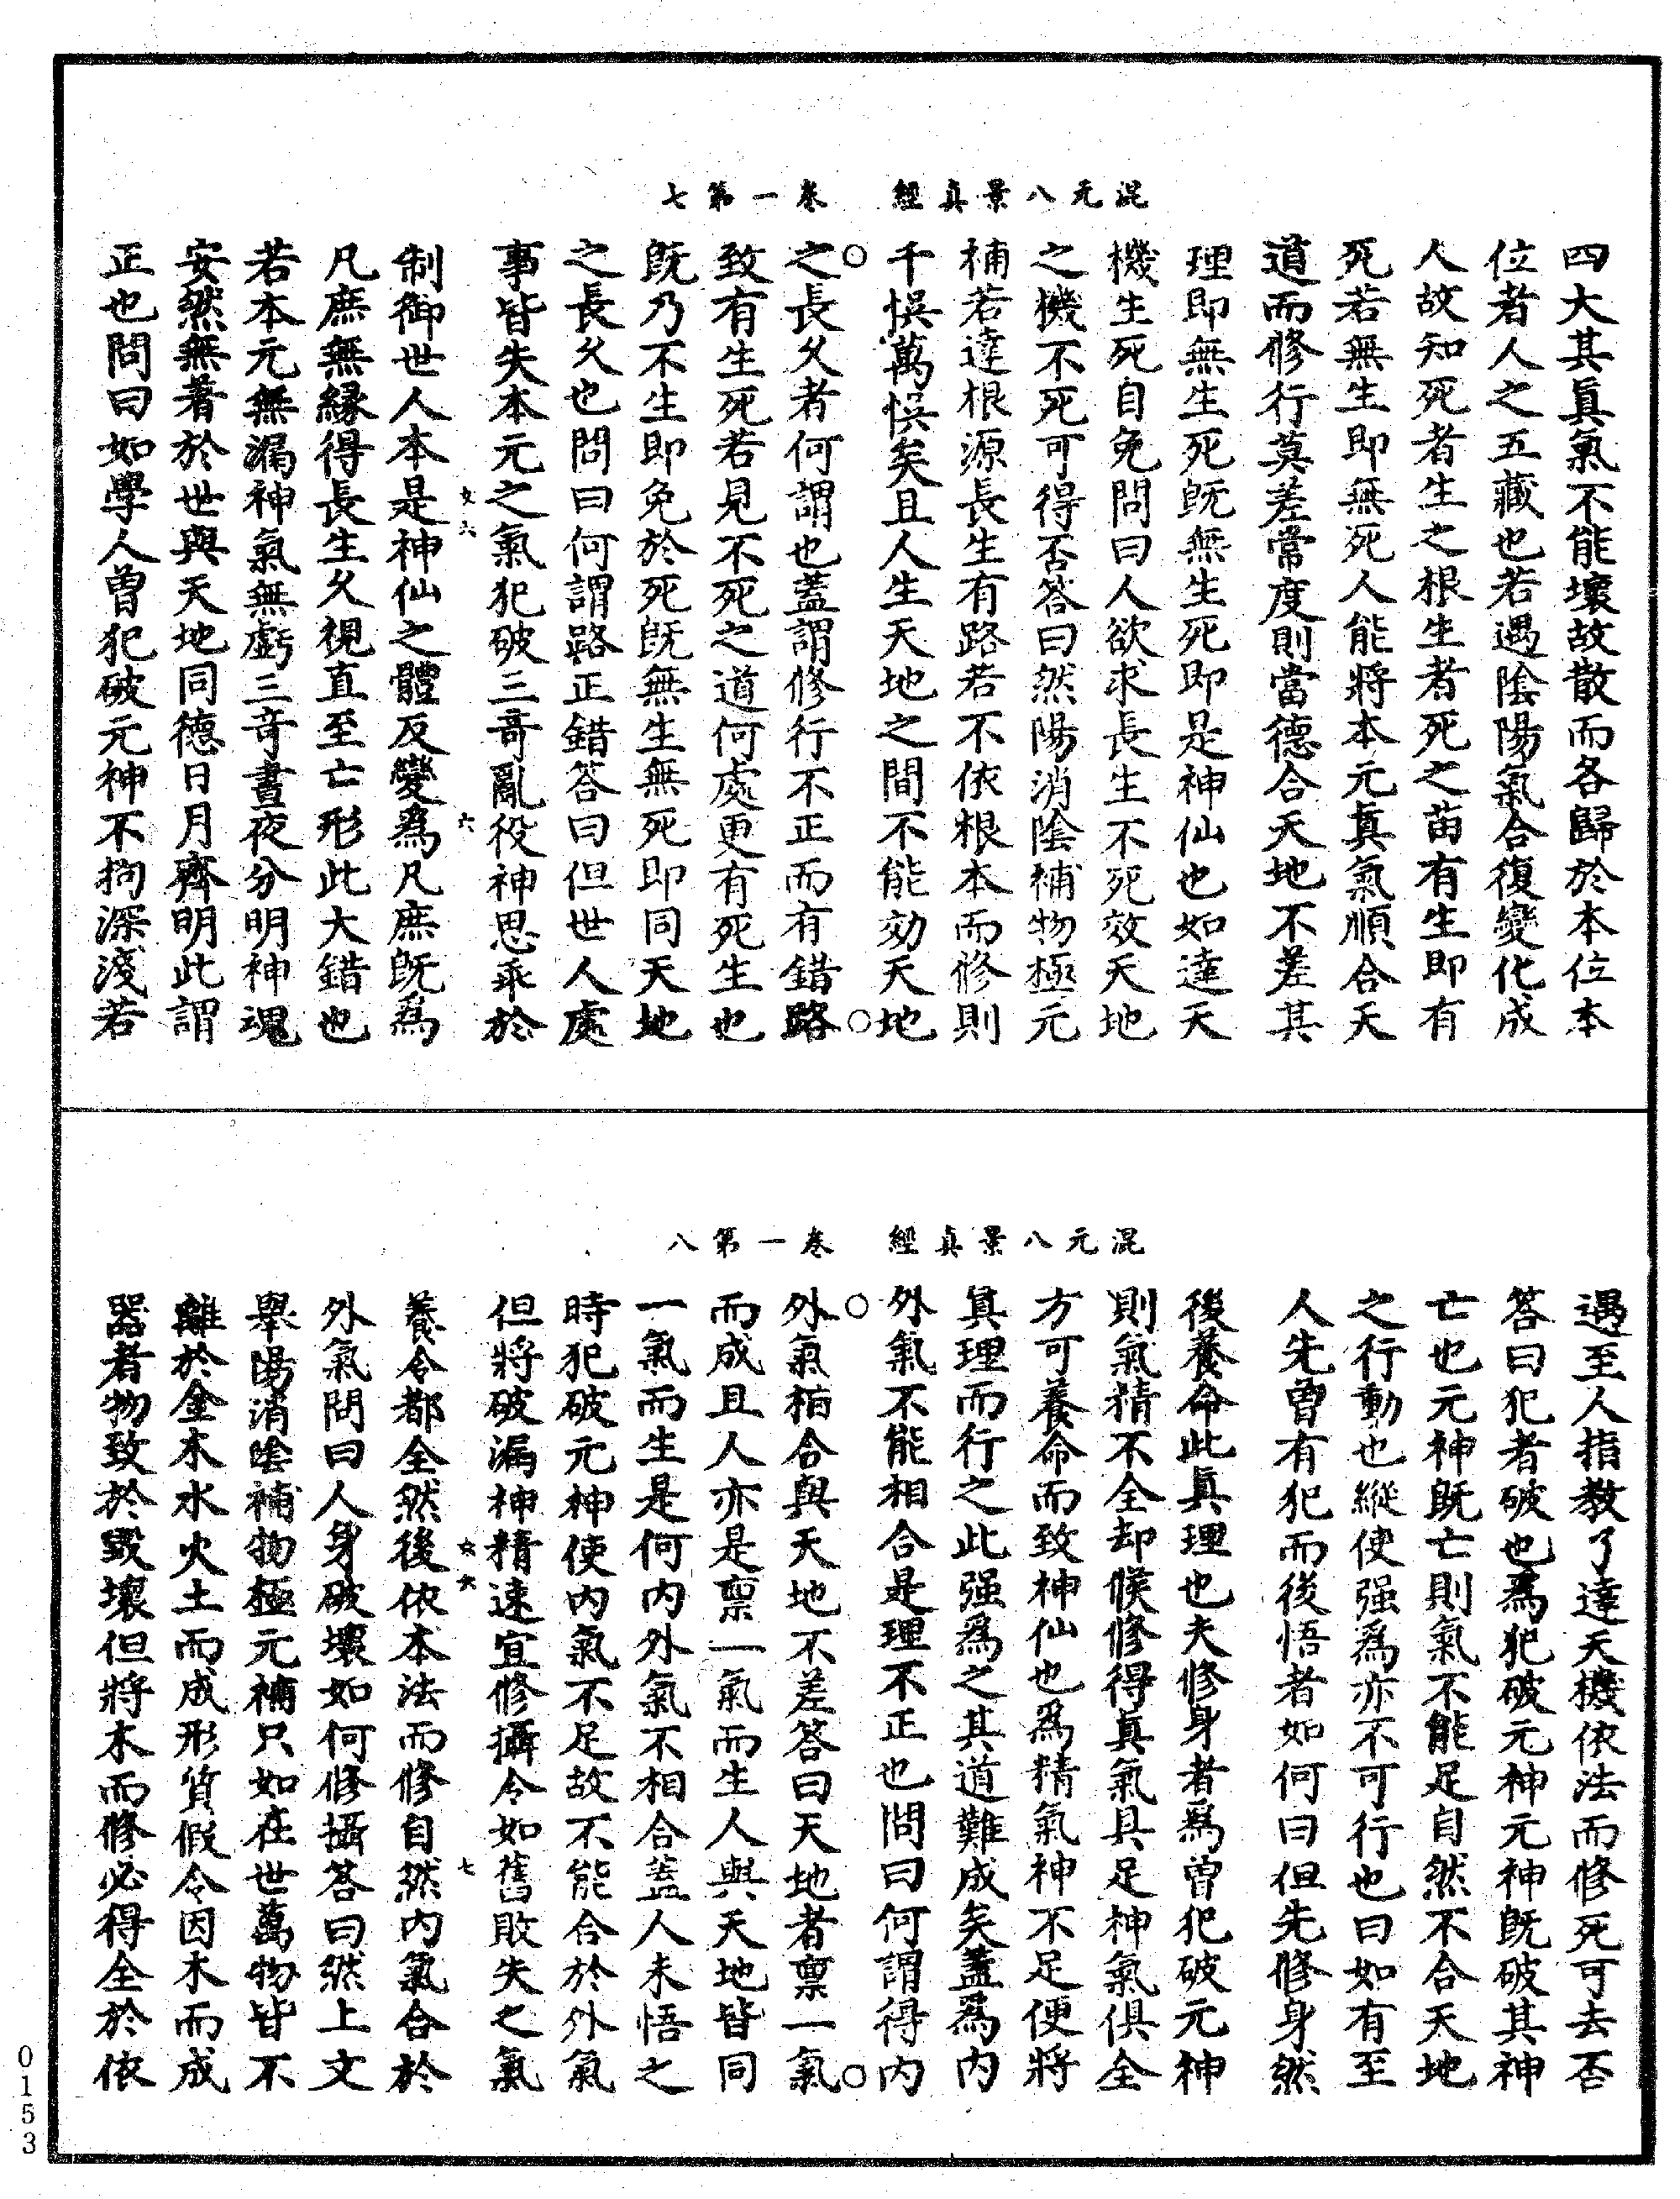 混元八景真經　卷一第七
四大其真氣不能壞故散而各歸於本位本
位者人之五藏也若遇陰陽氣合復變化成
人故知死者生之根生者死之苗有生即有
死若無生即無死人能將本元真氣順合天
道而修行莫差常度則當德合天地不差其
理即無生死既無生死即是神仙也如達天
機生死自免問曰人欲求長生不死效天地
之機不死可得否答曰然陽消陰補物極元
補若達根源長生有路若不依根本而修則
千悞萬悞矣且人生天地之間不能効天地
之長久者何謂也蓋謂修行不正而有錯路
致有生死若見不死之道何處更有死生也
既乃不生即免於死既無生無死即同天地
之長久也問曰何謂路正錯答曰但世人處
事皆失本元之氣犯破三奇亂役神思乖於
制御世人本是神仙之體反變為凡庶既為
凡庶無緣得長生久視直至亡形此大錯也
若本元無漏神氣無虧三奇晝夜分明神魂
安然無著於世與天地同德日月齊明此謂
正也問曰如學人曾犯破元神不拘深淺若
混元八景真經　卷一第八
遇至人指教了達天機依法而修死可去否
答曰犯者破也為犯破元神元神既破其神
亡也元神既亡則氣不能足自然不合天地
之行動也縱使强為亦不可行也曰如有至
人先曾有犯而後悟者如何曰但先修身然
後養命此真理也夫修身者為曾犯破元神
則氣精不全却候修得真氣具足神氣俱全
方可養命而致神仙也為精氣神不足便將
真理而行之此强為之其道難成矣蓋為內
外氣不能相合是理不正也問曰何謂得內
外氣相合與天地不差答曰天地者稟一氣
而成且人亦是稟一氣而生人與天地皆同
一氣而生是何內外氣不相合蓋人未悟之
時犯破元神使內氣不足故不能合於外氣
但將破漏神精速宜修攝令如舊敗失之氣
養令都全然後依本法而修自然內氣合於
外氣問曰人身破壞如何修攝答曰然上文
舉陽消陰補物極元補只如在世萬物皆不
離於金木水火土而成形質假令因木而成
器者物致於毀壞但將木而修必得全於依
0153